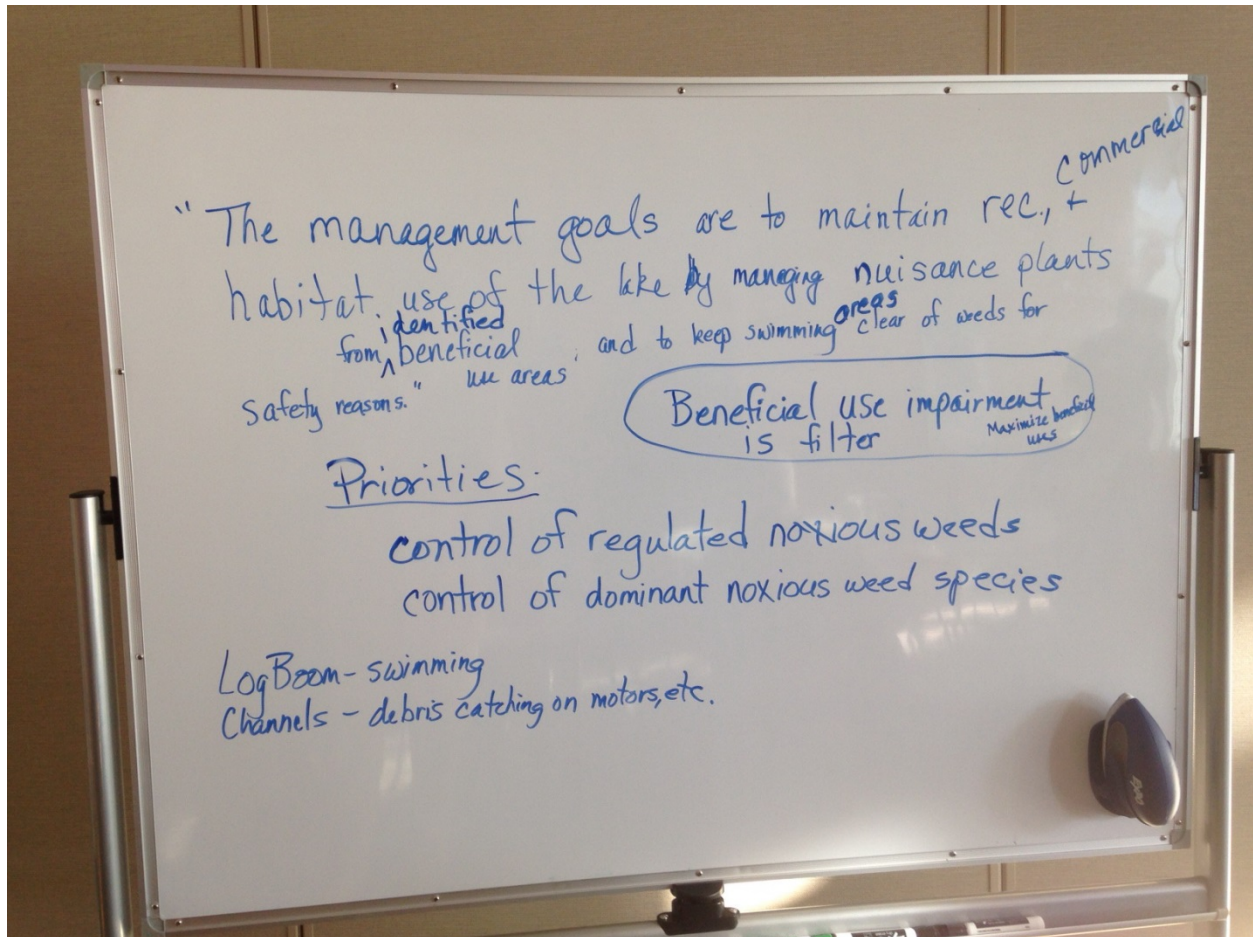 commercial
"The management goals are to maintain rec., +
habitat, use of the lake by managing nuisance plants
identified
from ^ beneficial use areas, and to keep swimming areas clear of weeds for
safety reasons."
Beneficial use impairment
is filter
Maximize beneficial
uses
Priorities.
control of regulated noxious weeds
control of dominant noxious weed species
LogBoom - swimming
Channels - debris catching on motors, etc.
Expo